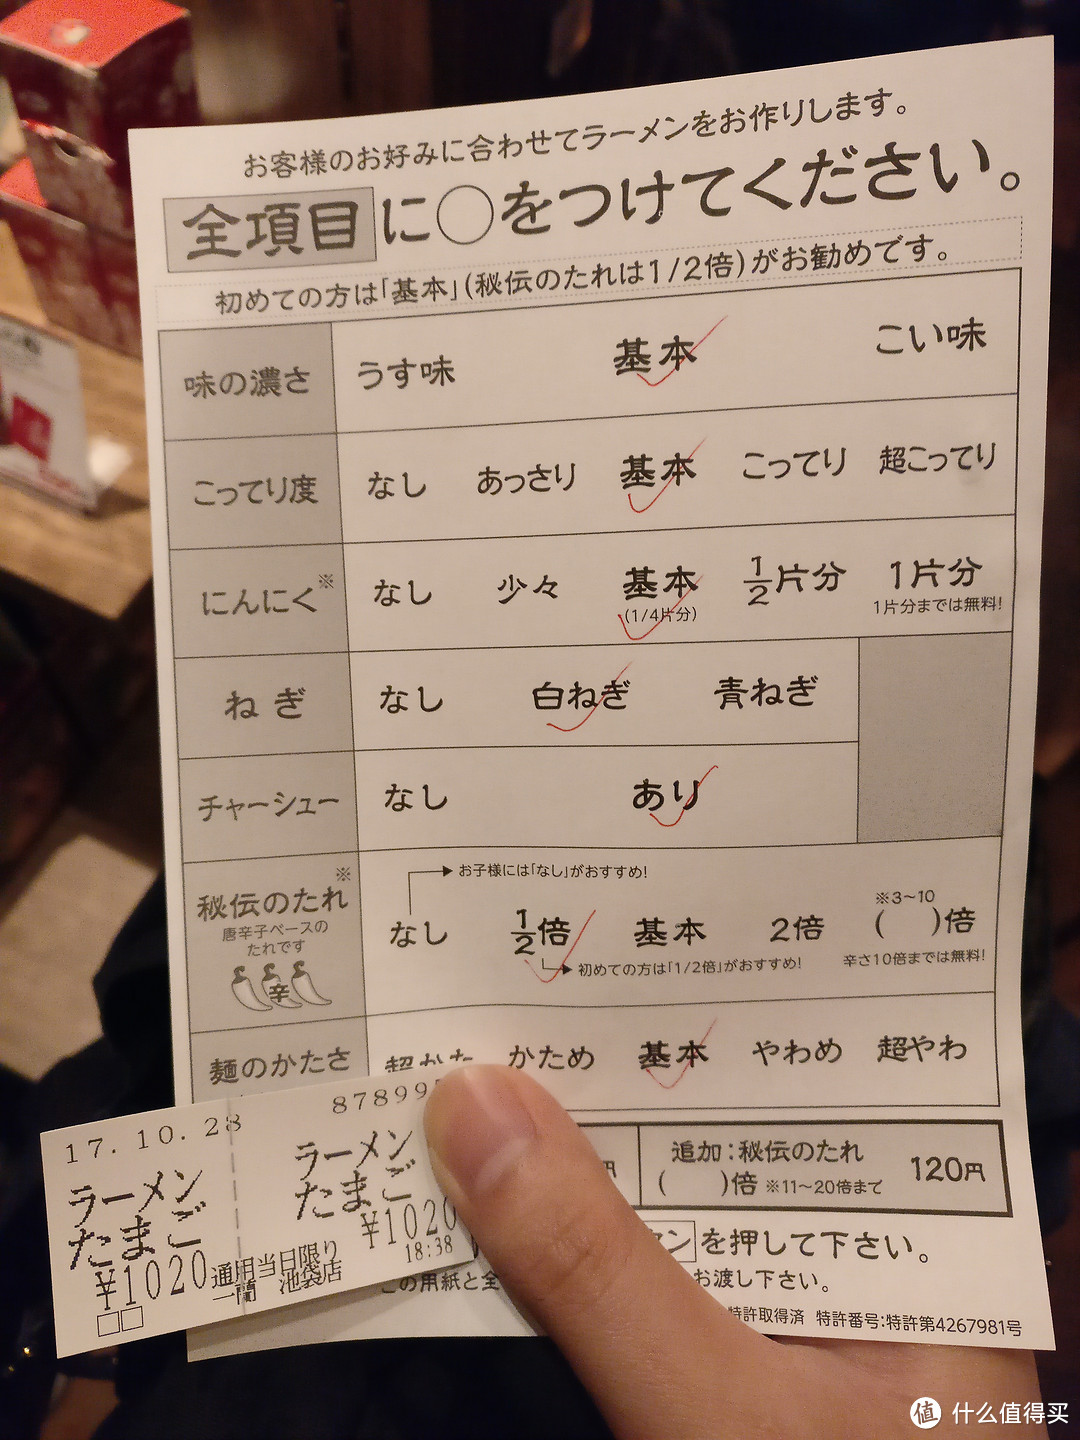 お客様のお好みに合わせてラーメンをお作りします。
全項目に○をつけてください。
初めての方は「基本」(秘伝のたれは1/2倍)がお勧めです。
味の濃さ うす味 基本 こい味
こってり度 なし あっさり 基本 こってり 超こってり
にんにく※ なし 少々 基本 1/2片分 1片分
(1/4片分) 1片分までは無料!
ねぎ なし 白ねぎ 青ねぎ
チャーシュー なし あり
お子様には「なし」がおすすめ!
秘伝のたれ※ なし 1/2倍 基本 2倍 ( )倍
※3~10
唐辛子ベースの
たれです
辛
初めての方は「1/2倍」がおすすめ!
辛さ10倍までは無料!
麺のかたさ 超かた かため 基本 やわめ 超やわ
円
追加:秘伝のたれ
( )倍 ※11~20倍まて 120円
タン を押して下さい。
この用紙と全
お渡し下さい。
特許取得済 特許番号:特許第4267981号
17.10.28
87899
ラーメン
たまご
¥1020
ラーメン
たまご
¥1020
18:38
通用当日限り
一蘭 池袋店
值 什么值得买